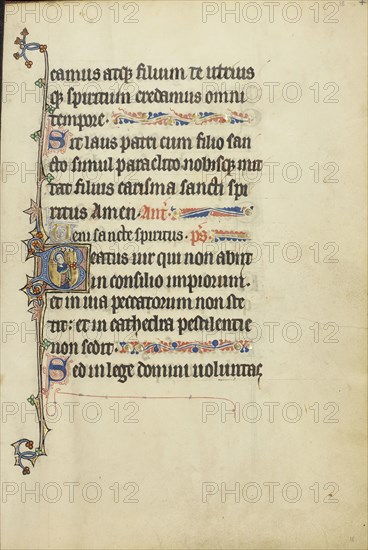 camus atq; filium te utrius
q; spiritum credamus omni
tempore.
Sit laus patri cum filio san
cto simul paraclito nobisq; mit
tat filius carisma sancti spi
ritus Amen. Ant.
Veni sancte spiritus. ps.
Beatus uir qui non abiit
in consilio impiorum.
et in uia peccatorum non ste
tit: et in cathedra pestilentie
non sedit.
Sed in lege domini uoluntas
PHOTO 12